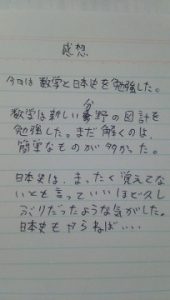 感想
今日は数学と日本史を勉強した。
数学は新しい分野の図計を
勉強した。まだ解くのは、
簡単なものが多かった。
日本史は、まったく覚えてな
いとも言っていいほど久し
ぶりだったような気がした。
日本史もやらねば…